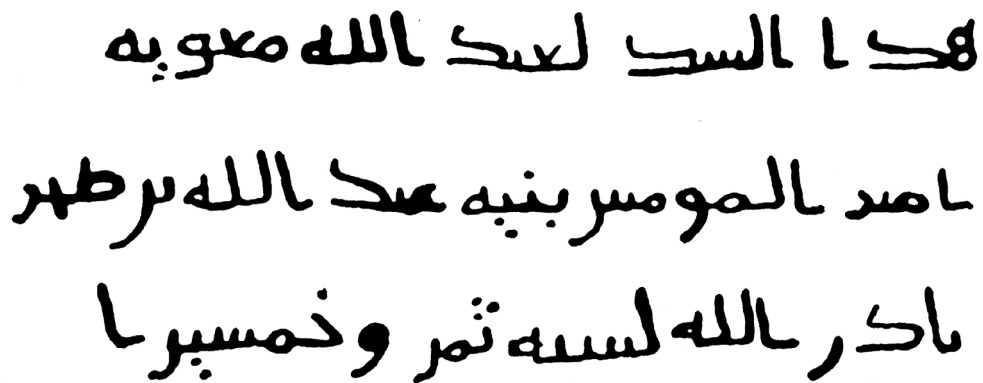 هذا السد لعبد الله معويه
امير المومنين بنيه عبد الله بن صخر
باذن الله لسنه ثمن وخمسين ا